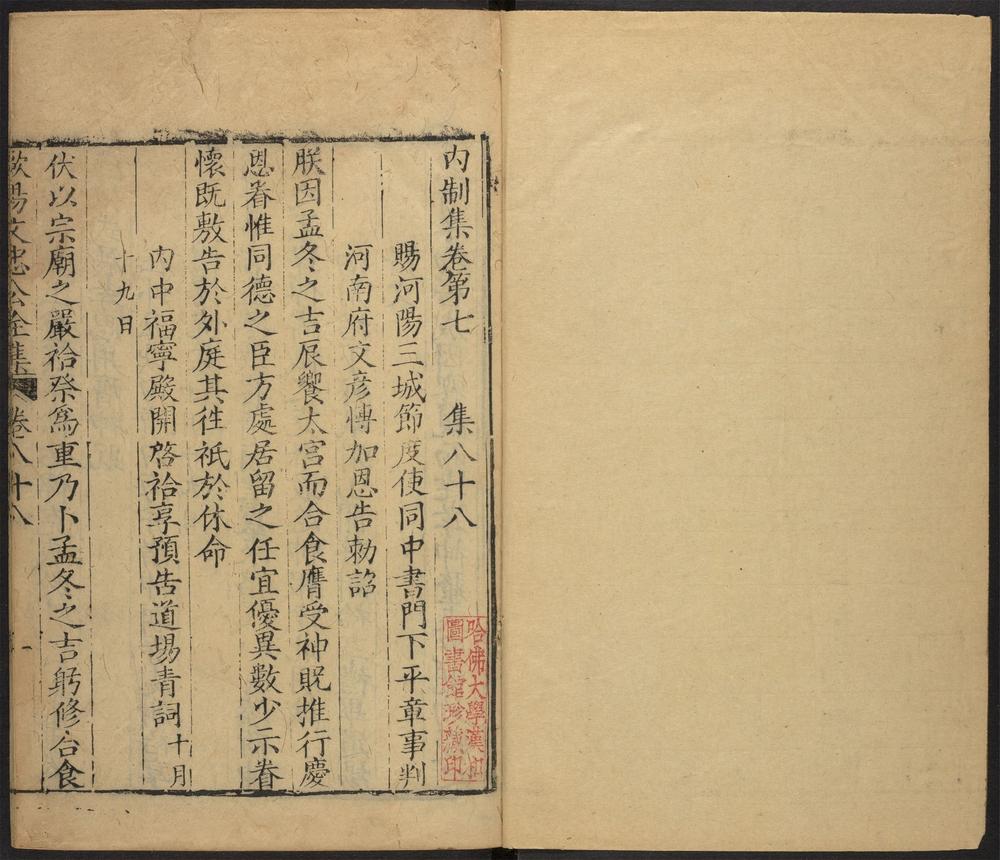 内制集卷第七 集八十八
賜河陽三城節度使同中書門下平章事判
河南府文彥愽加恩告勑詔
朕因孟冬之吉辰饗太宮而合食膺受神貺推行慶
恩眷惟同德之臣方處居留之任宜優異數少示眷
懷既敷告於外庭其徃祇於休命
内中福寧殿開啓祫享預告道場青詞十月
十九日
伏以宗廟之嚴祫祭爲重乃卜孟冬之吉躬修合食
歐陽文忠公全集 卷八十八
哈佛大學漢和
圖書館珍藏印